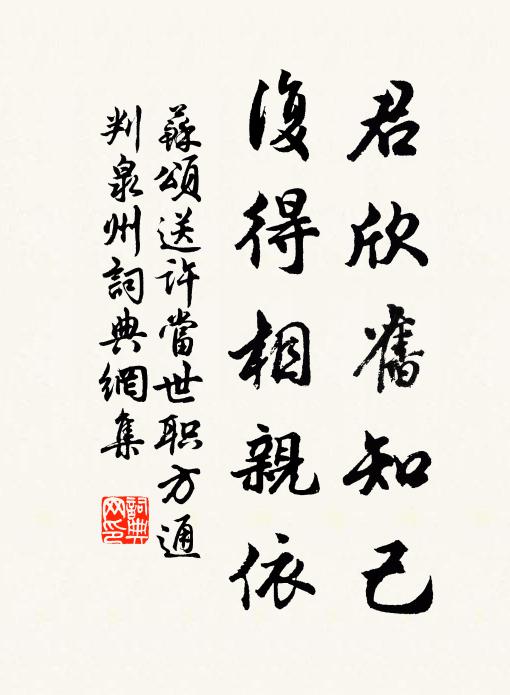 君欣舊知己
復得相親依
蘇頌送许當世职方通
判泉州詞典網集
詞典
网印